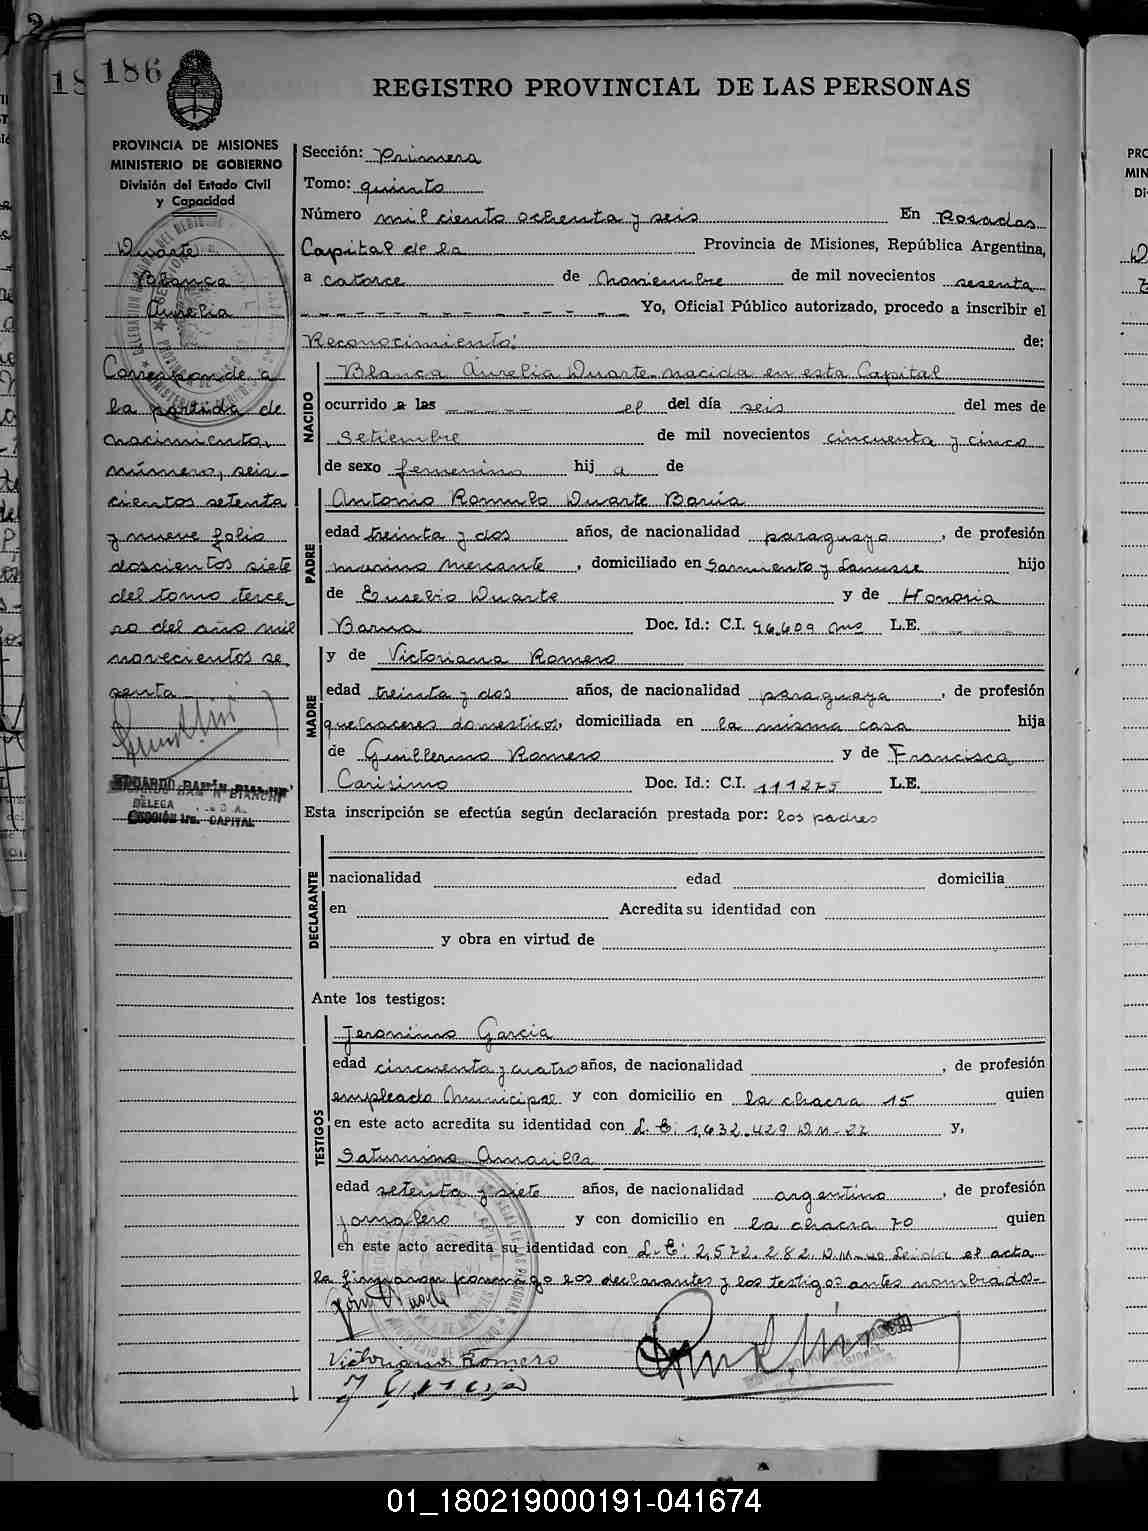 186
REGISTRO PROVINCIAL DE LAS PERSONAS
PROVINCIA DE MISIONES
MINISTERIO DE GOBIERNO
División del Estado Civil
y Capacidad
Duarte
Blanca
Aurelia
Corresponde a
la partida de
nacimiento,
número, seis-
cientos setenta
y nueve folio
doscientos siete
del tomo terce-
ro del año mil
novecientos se-
senta
SECCIÓN 1ra. CAPITAL
Sección: Primera
Tomo: quinto
Número mil ciento ochenta y seis En Posadas
Capital de la Provincia de Misiones, República Argentina,
a catorce de Noviembre de mil novecientos sesenta
Yo, Oficial Público autorizado, procedo a inscribir el
Reconocimiento: de:
NACIDO
Blanca Aurelia Duarte nacida en esta Capital
ocurrido a las el del día seis del mes de
Setiembre de mil novecientos cincuenta y cinco
de sexo femenino hij a de
PADRE
Antonio Romulo Duarte Barúa
edad treinta y dos años, de nacionalidad paraguayo, de profesión
marino mercante, domiciliado en Sarmiento y Lanusse hijo
de Eusebio Duarte y de Honoria
Barua Doc. Id.: C.I. 96.609 Ms L.E.
MADRE
y de Victoriana Romero
edad treinta y dos años, de nacionalidad paraguaya, de profesión
quehaceres domesticos, domiciliada en la misma casa hija
de Guillermo Romero y de Francisca
Carisimo Doc. Id.: C.I. 111275 L.E.
Esta inscripción se efectúa según declaración prestada por: los padres
DECLARANTE
nacionalidad edad domicilia
en Acredita su identidad con
y obra en virtud de
Ante los testigos:
TESTIGOS
Jeronimo Garcia
edad cincuenta y cuatro años, de nacionalidad , de profesión
empleado Municipal y con domicilio en la chacra 15 quien
en este acto acredita su identidad con L.E. 1,632.429 DM-22 y,
Saturnino Amarilla
edad setenta y siete años, de nacionalidad argentino, de profesión
jornalero y con domicilio en la chacra 70 quien
en este acto acredita su identidad con L.E. 2,572.282 Leida el acta
la firman conmigo los declarantes y los testigos antes nombrados-
Victoriana Romero
J Garcia
01_180219000191-041674